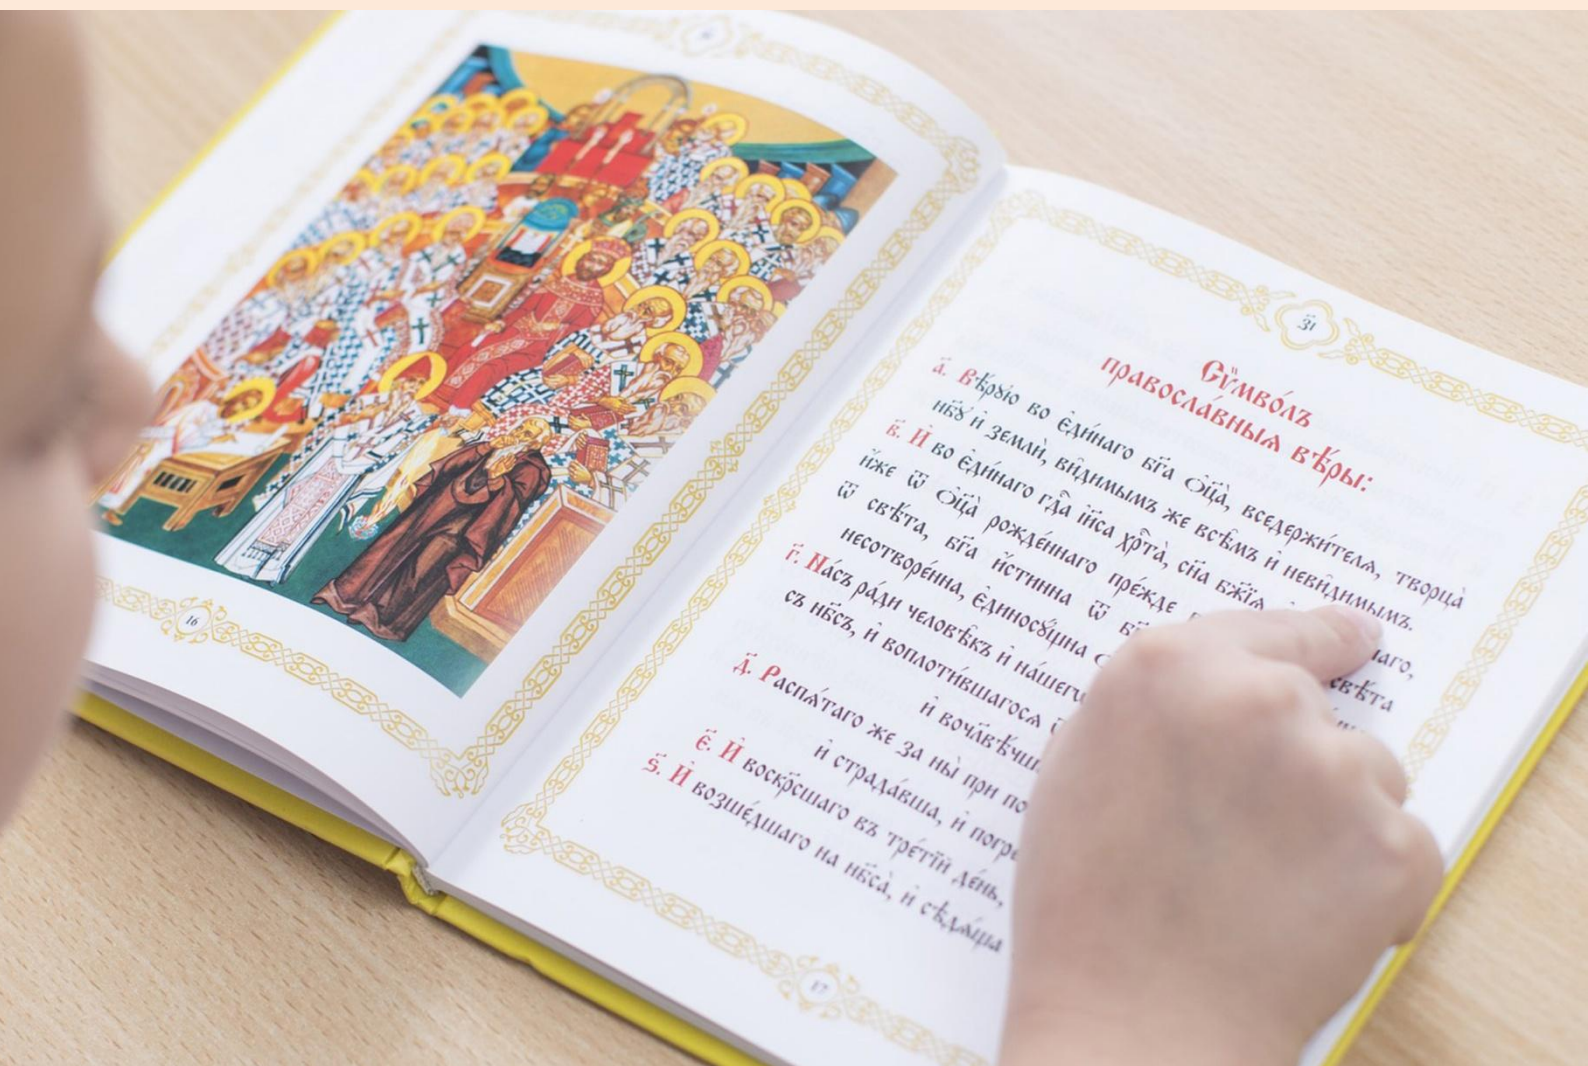 16
з҃і
Сѵ́мво́лъ
правосла́вныѧ вѣ́ры:
а҃. Вѣ́рꙋю во є҆ди́наго бг҃а ѻ҆ц҃а̀, вседержи́телѧ, творца̀
нб҃ꙋ̀ и҆ землѝ, ви̑димымъ же всѣ̑мъ и҆ неви̑димымъ.
в҃. И҆ во є҆ди́наго гдⷭ҇а і҆и҃са хрⷭ҇та̀, сн҃а бж҃їѧ
и҆́же ѿ ѻ҆ц҃а̀ рожде́ннаго пре́жде
ѿ свѣ́та, бг҃а и҆́стинна ѿ свѣ́та
несотворе́нна, є҆диносꙋ́щна
г҃. На́съ ра́ди человѣ̑къ и҆ на́шегѡ
съ нб҃съ, и҆ воплоти́вшагосѧ
и҆
д҃. Распѧ́таго же за ны̀ при
и҆ страда́вша, и҆
є҃. И҆ воскр҃сшаго въ тре́тїй де́нь,
ѕ҃. И҆ возше́дшаго на нб҃са̀, и҆ сѣдѧ́ща
17